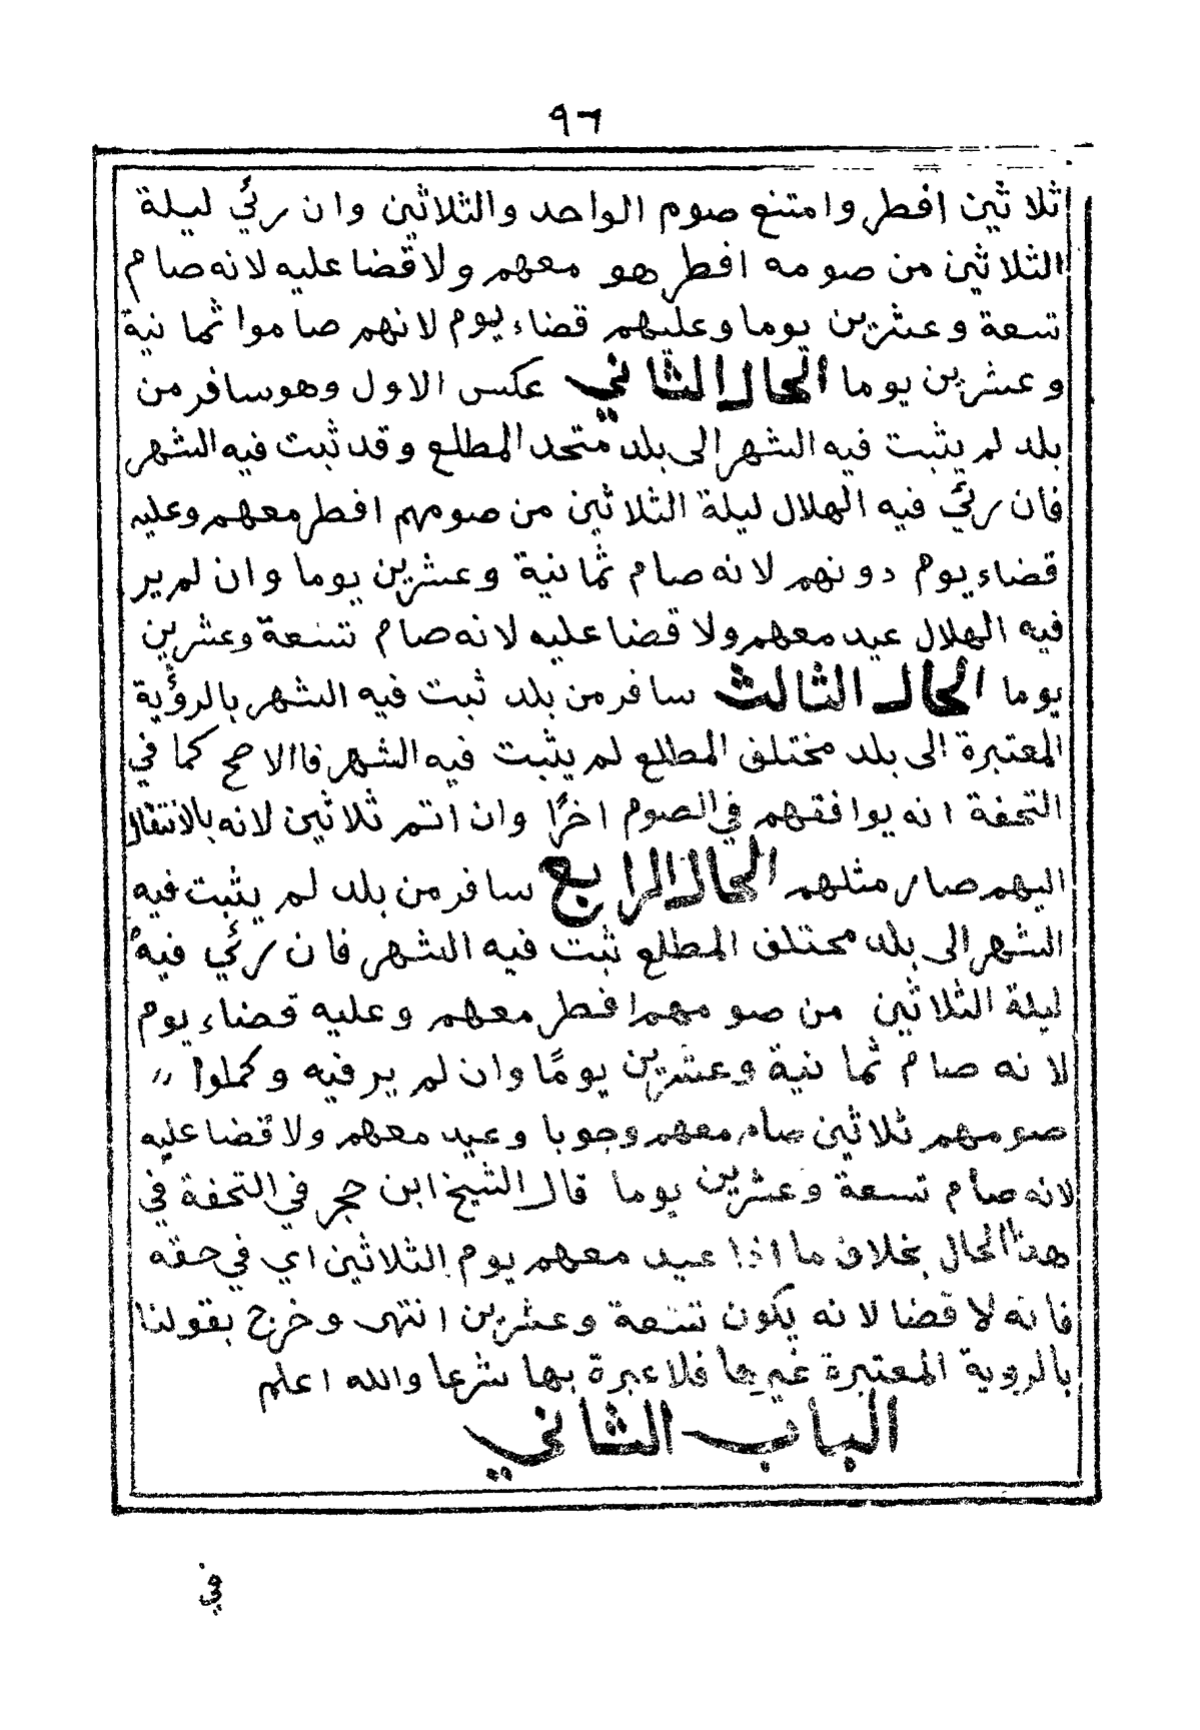 ٩٦
ثلاثين افطر وامتنع صوم الواحد والثلاثين وان رئي ليلة
الثلاثين من صومه افطر هو معهم ولا قضا عليه لانه صام
تسعة وعشرين يوما وعليهم قضاء يوم لانهم صاموا ثمانية
وعشرين يوما الحال الثاني عكس الاول وهو سافر من
بلد لم يثبت فيه الشهر الى بلد متحد المطلع وقد ثبت فيه الشهر
فان رئي فيه الهلال ليلة الثلاثين من صومهم افطر معهم وعليه
قضاء يوم دونهم لانه صام ثمانية وعشرين يوما وان لم ير
فيه الهلال عيد معهم ولا قضا عليه لانه صام تسعة وعشرين
يوما الحال الثالث سافر من بلد ثبت فيه الشهر بالرؤية
المعتبرة الى بلد مختلف المطلع لم يثبت فيه الشهر فاالاصح كما في
التحفة انه يوافقهم في الصوم اخرًا وان اتم ثلاثين لانه بالانتقال
اليهم صار مثلهم الحال الرابع سافر من بلد لم يثبت فيه
الشهر الى بلد مختلف المطلع ثبت فيه الشهر فان رئي فيه
ليلة الثلاثين من صومهم افطر معهم وعليه قضاء يوم
لانه صام ثمانية وعشرين يومًا وان لم ير فيه وكملوا ،،
صومهم ثلاثين صام معهم وجوبا وعيد معهم ولا قضا عليه
لانه صام تسعة وعشرين يوما قال الشيخ ابن حجر في التحفة في
هذا الحال بخلاف ما اذا عيد معهم يوم الثلاثين اي في حقه
فانه لا قضا لانه يكون تسعة وعشرين انتهى وخرج بقولنا
بالروية المعتبرة غيرها فلا عبرة بها شرعا والله اعلم
الباب الثاني
في